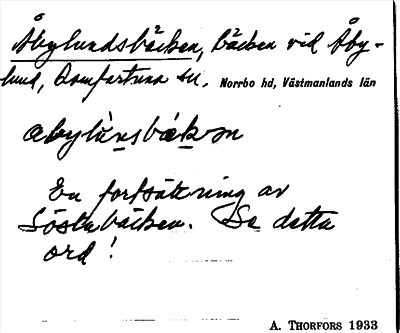 Åbylundsbäcken, bäcken vid Åby-
lund, Romfartuna sn. Norrbo hd, Västmanlands län
abylùnsbäkən
En fortsättning av
Lösta bäcken. Se detta
ord!
A. THORFORS 1933